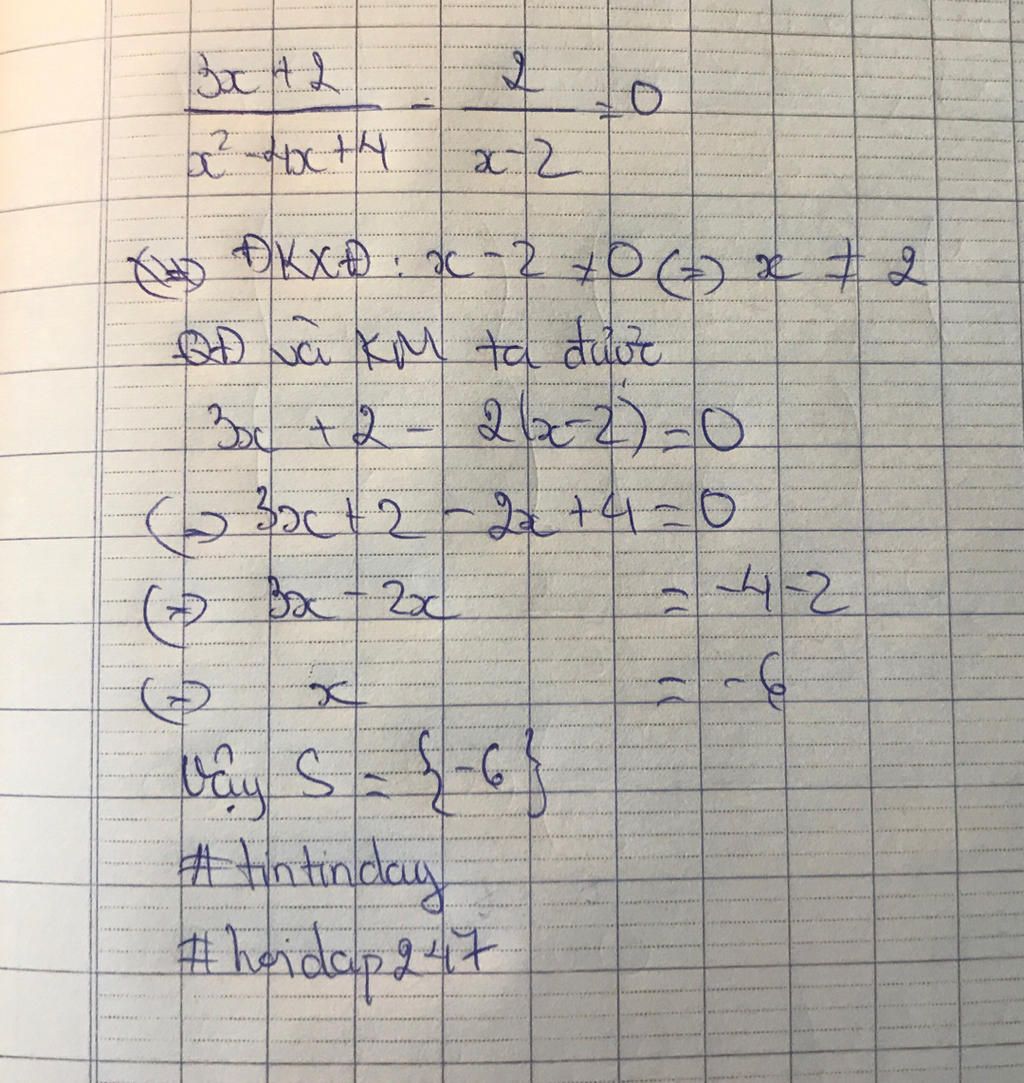 3x + 2 / x² - 4x + 4 - 2 / x - 2 = 0
ĐKXĐ : x - 2 ≠ 0 (=) x ≠ 2
QĐ và KM ta được
3x + 2 - 2(x - 2) = 0
(=) 3x + 2 - 2x + 4 = 0
(=) 3x - 2x = -4 - 2
(=) x = -6
Vậy S = {-6}
#tintinday
#hoidap247